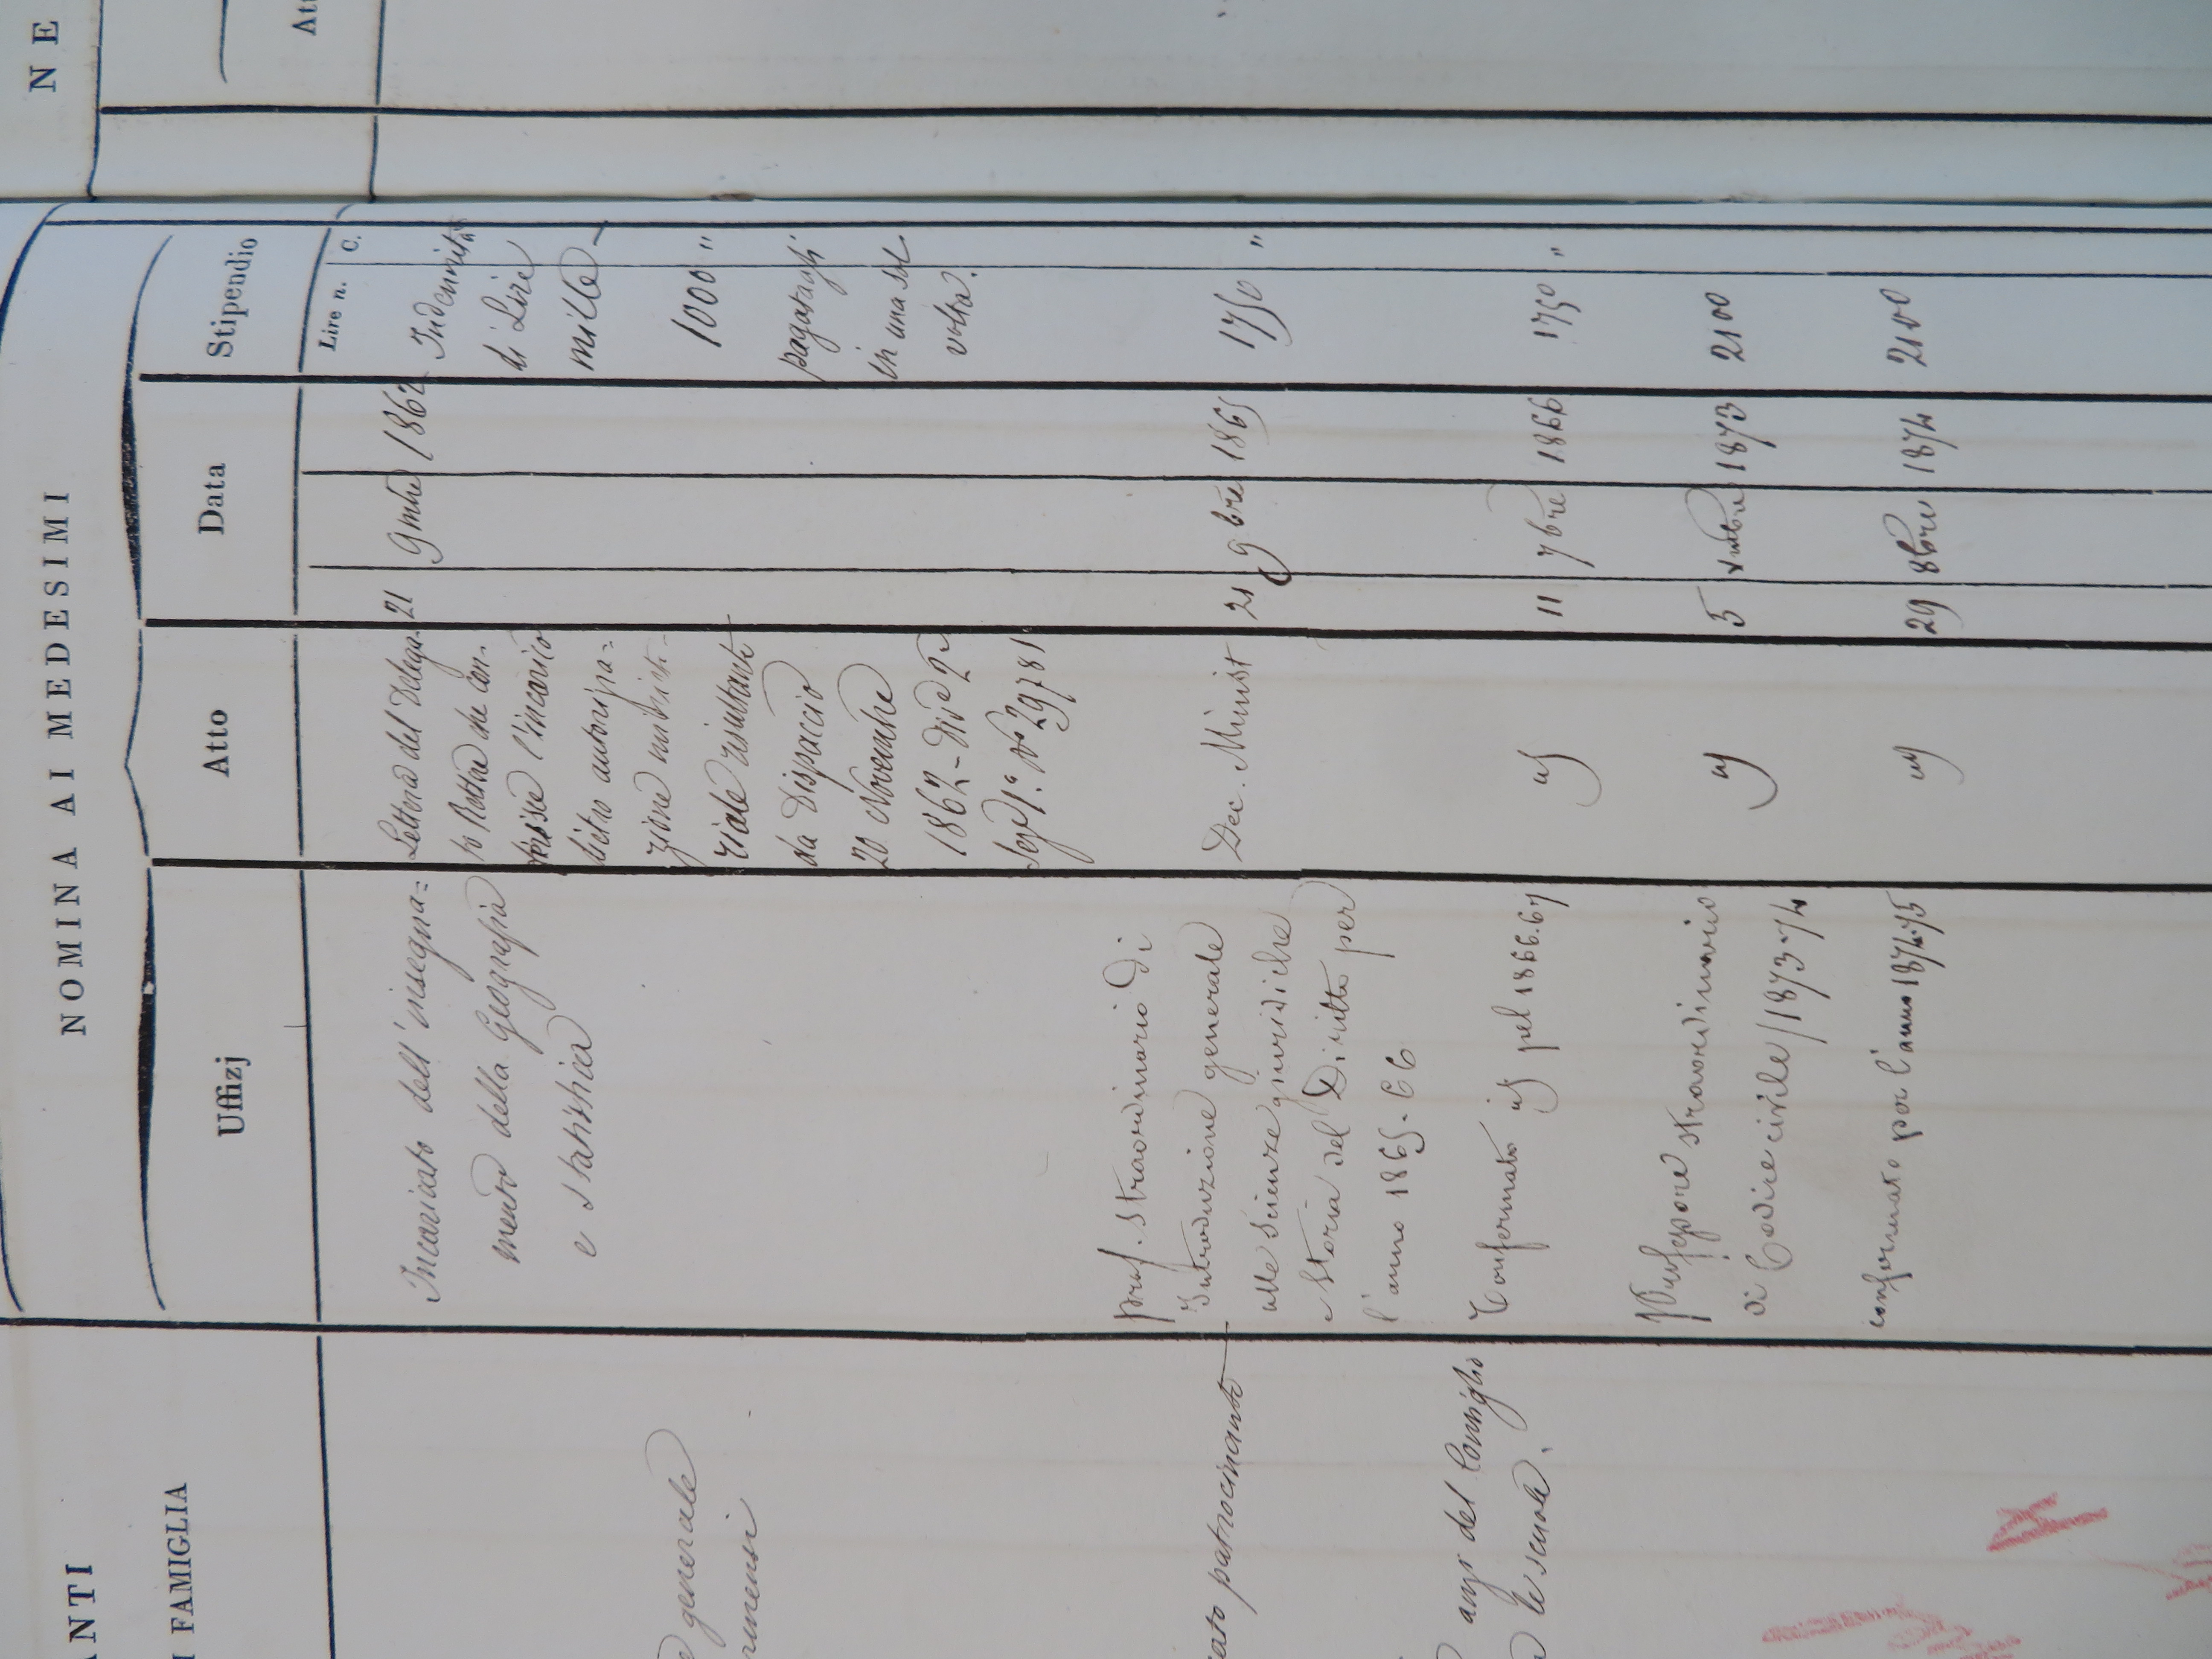 N E
Att
NOMINA AI MEDESIMI
ANTI
I FAMIGLIA
Uffizj
Atto
Data
Stipendio
Lire n.
C.
Incaricato dell'insegna=
mento della Geografia
e statistica
Lettera del Delega-
to Rettore che con-
ferisce l'incarico
dietro autorizza=
zione ministe-
riale risultante
da Dispaccio
20 Novembre
1862 - Div.e 2a
Sez.e 1.a No 29781
21 9mbre 1862
Indennità
di Lire
mille
1000 "
pagatagli
in una sol
volta.
generale
Prof. Straordinario di
Introduzione generale
alle Scienze giuridiche
e Storia del Diritto per
l'anno 1865-66
Dec. Minist
21 9bre 1865
1750 "
patrocinante
Confermato id pel 1866.67
id
11 7bre 1866
1750 "
anzi del Consiglio
le scuole.
Professore straordinario
di Codice civile /1873-74
id
5 Xmbre 1873
2100
confermato per l'anno 1874-75
id
29 8bre 1874
2100